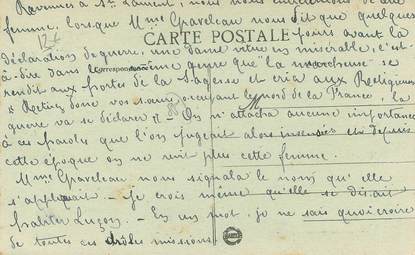 Ravennes à St Laurent, nous
femme, lorsque Mme Graveleau nous dit que quelques
126
jours avant la
CARTE POSTALE
déclaration de guerre, une dame vêtue en misérable, c'est-
Correspondance
à-dire dans le même genre que "la marcheuse" se
rendit aux portes de la Sagesse et cria aux Religieuses
" Retirez donc vos sœurs occupant le nord de la France, la
guerre va se déclarer " On n'attacha aucune importance
à ces paroles que l'on jugeait alors insensées et depuis
cette époque on ne vit plus cette femme.
Mme Graveleau nous signala le nom qu'elle
s'appliquait - Je crois même qu'elle se disait
habiter Luçon. - En un mot, je ne sais quoi croire
de toutes ces drôles missions.